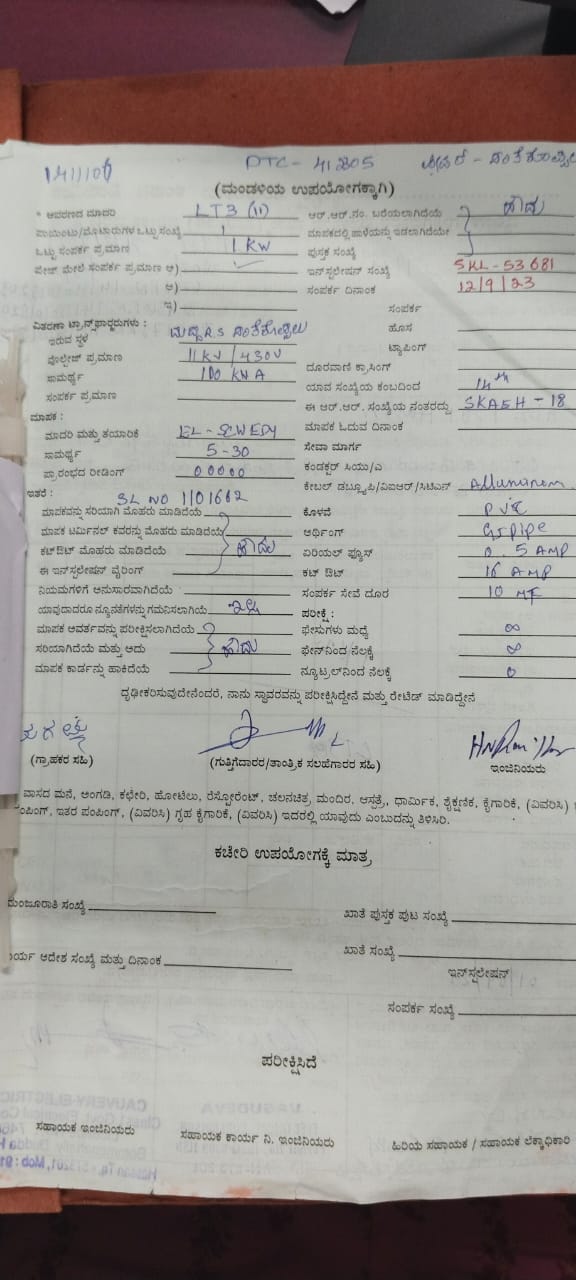 DTC - 41805
(ಮಂಡಳಿಯ ಉಪಯೋಗಕ್ಕಾಗಿ)
* ಆವರಣದ ಮಾದರಿ LT3 (ii) ಆರ್.ಆರ್.ನಂ. ಬರೆಯಲಾಗಿದೆಯೇ ಹೌದು
ಪಾಯಿಂಟು/ಮೋಟಾರುಗಳ ಒಟ್ಟು ಸಂಖ್ಯೆ 1 ಮಾಪಕದಲ್ಲಿ ಹಾಳೆಯನ್ನು ಇಡಲಾಗಿದೆಯೇ
ಒಟ್ಟು ಸಂಪರ್ಕ ಪ್ರಮಾಣ 1 KW ಪುಸ್ತಕ ಸಂಖ್ಯೆ
ಪೇಜ್ ಮೇಲೆ ಸಂಪರ್ಕ ಪ್ರಮಾಣ ಅ) ಇನ್‌ಸ್ಟಲೇಷನ್ ಸಂಖ್ಯೆ SKL-53681
ಆ) ಸಂಪರ್ಕ ದಿನಾಂಕ 12/9/23
ಇ) ಸಂಪರ್ಕ
ವಿತರಣಾ ಟ್ರಾನ್ಸ್‌ಫಾರ್‍ಮರುಗಳು :
ಇರುವ ಸ್ಥಳ ಹೊಸ
ವೋಲ್ಟೇಜ್ ಪ್ರಮಾಣ 11KV/430V ಟ್ಯಾಪಿಂಗ್
ಸಾಮರ್ಥ್ಯ 100 KVA ದೂರವಾಣಿ ಕ್ರಾಸಿಂಗ್
ಸಂಪರ್ಕ ಪ್ರಮಾಣ ಯಾವ ಸಂಖ್ಯೆಯ ಕಂಬದಿಂದ 14th
ಈ ಆರ್.ಆರ್. ಸಂಖ್ಯೆಯ ನಂತರದ್ದು SKAEH-18
ಮಾಪಕ : ಮಾಪಕ ಓದುವ ದಿನಾಂಕ
ಮಾದರಿ ಮತ್ತು ತಯಾರಿಕೆ EL-SEWEDY ಸೇವಾ ಮಾರ್ಗ
ಸಾಮರ್ಥ್ಯ 5-30 ಕಂಡಕ್ಟರ್ ಸಿಯು/ಎ
ಪ್ರಾರಂಭದ ರೀಡಿಂಗ್ 00000 ಕೇಬಲ್ ಡಬ್ಲ್ಯೂಪಿ/ವಿಐಆರ್/ಸಿಟಿಎಸ್ Alluminem
ಇತರೆ : SL NO 1101662
ಮಾಪಕವನ್ನು ಸರಿಯಾಗಿ ಮೊಹರು ಮಾಡಿದೆಯೆ ಕೊಳವೆ PVC
ಮಾಪಕ ಟರ್ಮಿನಲ್ ಕವರನ್ನು ಮೊಹರು ಮಾಡಿದೆಯೆ ಅರ್ಥಿಂಗ್ GI pipe
ಕಟ್‌ಔಟ್ ಮೊಹರು ಮಾಡಿದೆಯೆ ಹೌದು ಏರಿಯಲ್ ಫ್ಯೂಸ್ 0.5 AMP
ಈ ಇನ್‌ಸ್ಟಲೇಷನ್ ವೈರಿಂಗ್ ಕಟ್ ಔಟ್ 16 AMP
ನಿಯಮಗಳಿಗೆ ಅನುಸಾರವಾಗಿದೆಯೆ ಸಂಪರ್ಕ ಸೇವೆ ದೂರ 10 MT
ಯಾವುದಾದರೂ ನ್ಯೂನತೆಗಳನ್ನು ಗಮನಿಸಲಾಗಿಯೆ ಇಲ್ಲ ಪರೀಕ್ಷೆ :
ಮಾಪಕ ಆವರ್ತವನ್ನು ಪರೀಕ್ಷಿಸಲಾಗಿದೆಯೆ ಫೇಸುಗಳು ಮಧ್ಯೆ ∞
ಸರಿಯಾಗಿದೆಯೆ ಮತ್ತು ಅದು ಹೌದು ಫೇಸ್‌ನಿಂದ ನೆಲಕ್ಕೆ ∞
ಮಾಪಕ ಕಾರ್ಡನ್ನು ಹಾಕಿದೆಯೆ ನ್ಯೂಟ್ರಲ್‌ನಿಂದ ನೆಲಕ್ಕೆ 0
ದೃಢೀಕರಿಸುವುದೇನೆಂದರೆ, ನಾನು ಸ್ಥಾವರವನ್ನು ಪರೀಕ್ಷಿಸಿದ್ದೇನೆ ಮತ್ತು ರೇಟಿಡ್ ಮಾಡಿದ್ದೇನೆ
(ಗ್ರಾಹಕರ ಸಹಿ) (ಗುತ್ತಿಗೆದಾರರ/ತಾಂತ್ರಿಕ ಸಲಹೆಗಾರರ ಸಹಿ) ಇಂಜಿನಿಯರು
ವಾಸದ ಮನೆ, ಅಂಗಡಿ, ಕಛೇರಿ, ಹೋಟೆಲು, ರೆಸ್ಟೋರೆಂಟ್, ಚಲನಚಿತ್ರ, ಮಂದಿರ, ಆಸ್ಪತ್ರೆ, ಧಾರ್ಮಿಕ, ಶೈಕ್ಷಣಿಕ, ಕೈಗಾರಿಕೆ, (ವಿವರಿಸಿ)
ಂಪಿಂಗ್, ಇತರ ಪಂಪಿಂಗ್, (ವಿವರಿಸಿ) ಗೃಹ ಕೈಗಾರಿಕೆ, (ವಿವರಿಸಿ) ಇದರಲ್ಲಿ ಯಾವುದು ಎಂಬುದನ್ನು ತಿಳಿಸಿರಿ.
ಕಚೇರಿ ಉಪಯೋಗಕ್ಕೆ ಮಾತ್ರ
ಮಂಜೂರಾತಿ ಸಂಖ್ಯೆ ಖಾತೆ ಪುಸ್ತಕ ಪುಟ ಸಂಖ್ಯೆ
ರ್ಯ ಆದೇಶ ಸಂಖ್ಯೆ ಮತ್ತು ದಿನಾಂಕ ಖಾತೆ ಸಂಖ್ಯೆ
ಇನ್‌ಸ್ಟಲೇಷನ್
ಸಂಪರ್ಕ ಸಂಖ್ಯೆ
ಪರೀಕ್ಷಿಸಿದೆ
ಸಹಾಯಕ ಇಂಜಿನಿಯರು ಸಹಾಯಕ ಕಾರ್ಯ ನಿ. ಇಂಜಿನಿಯರು ಹಿರಿಯ ಸಹಾಯಕ / ಸಹಾಯಕ ಲೆಕ್ಕಾಧಿಕಾರಿ